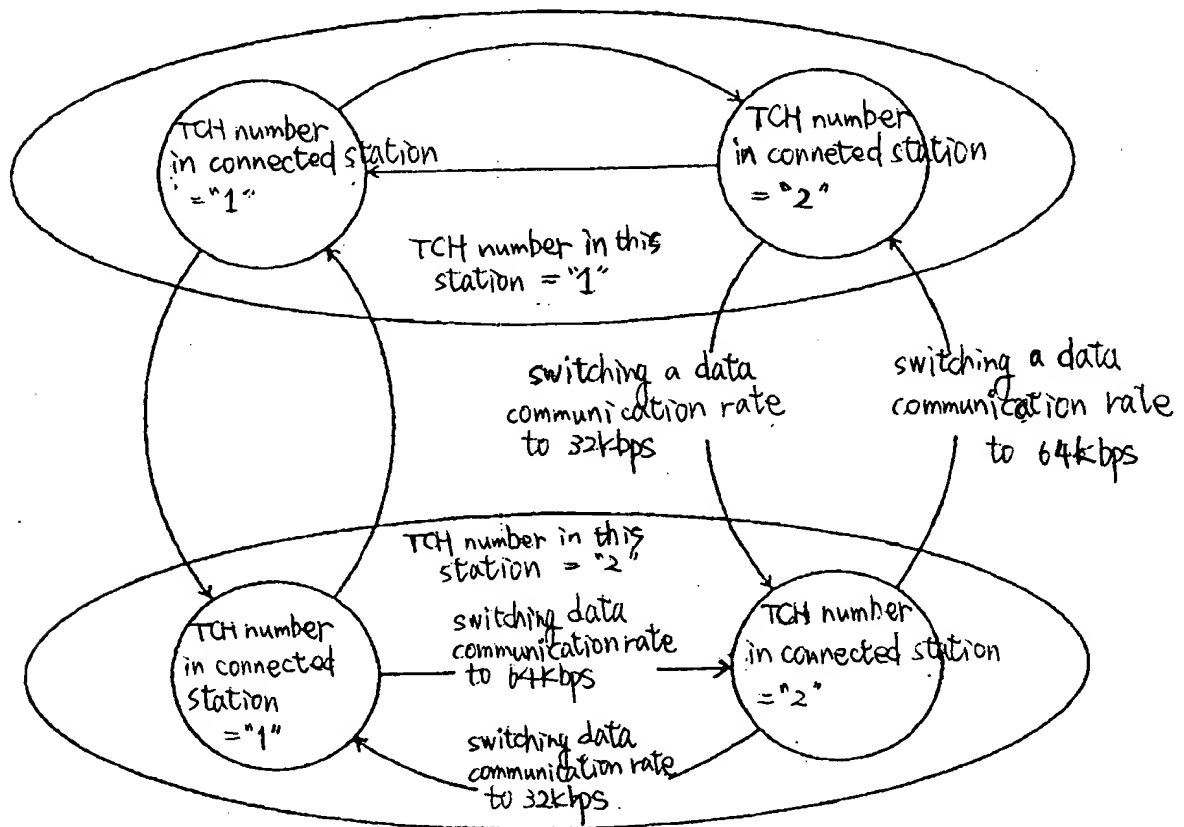 TCH number
in connected station
="1"
TCH number
in conneted station
="2"
TCH number in this
station ="1"
switching a data
communication rate
to 32kbps
switching a data
communication rate
to 64kbps
TCH number in this
station = "2"
TCH number
in connected
station
="1"
switching data
communication rate
to 64kbps
TCH number
in connected station
="2"
switching data
communication rate
to 32kbps.